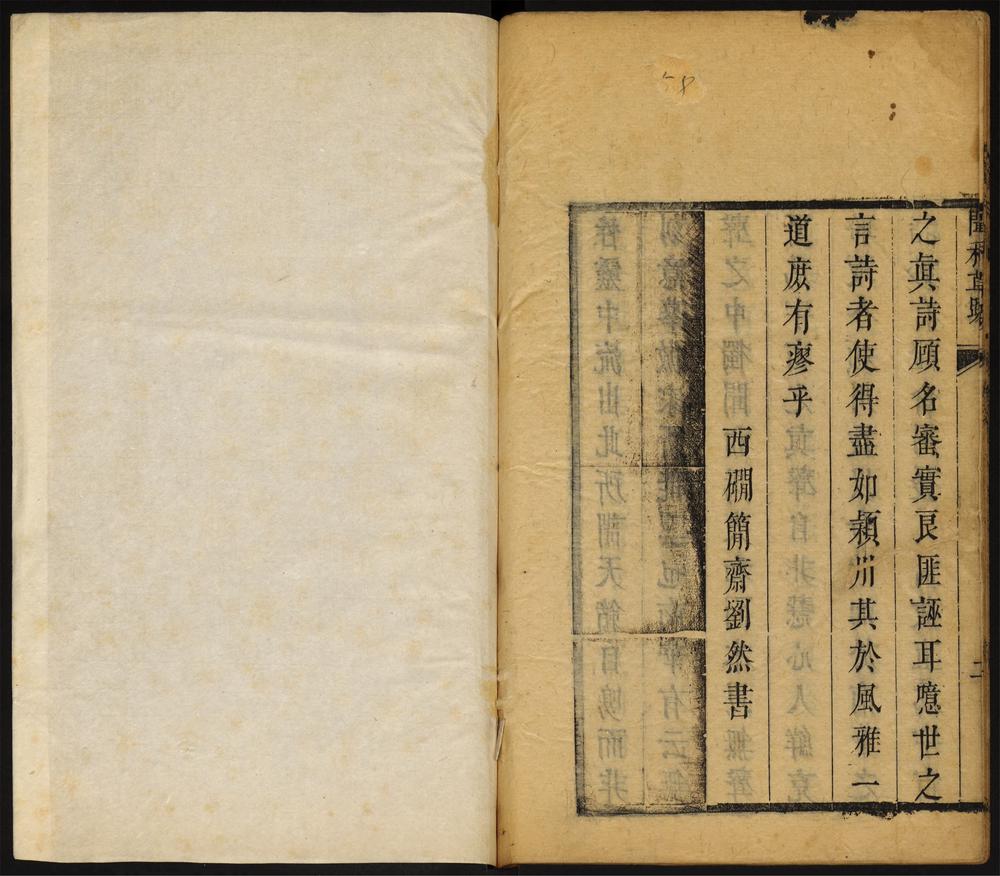 58
二
之眞詩顧名審實良匪誣耳噫世之
言詩者使得盡如潁川其於風雅一
道庶有瘳乎
西磵簡齋劉然書